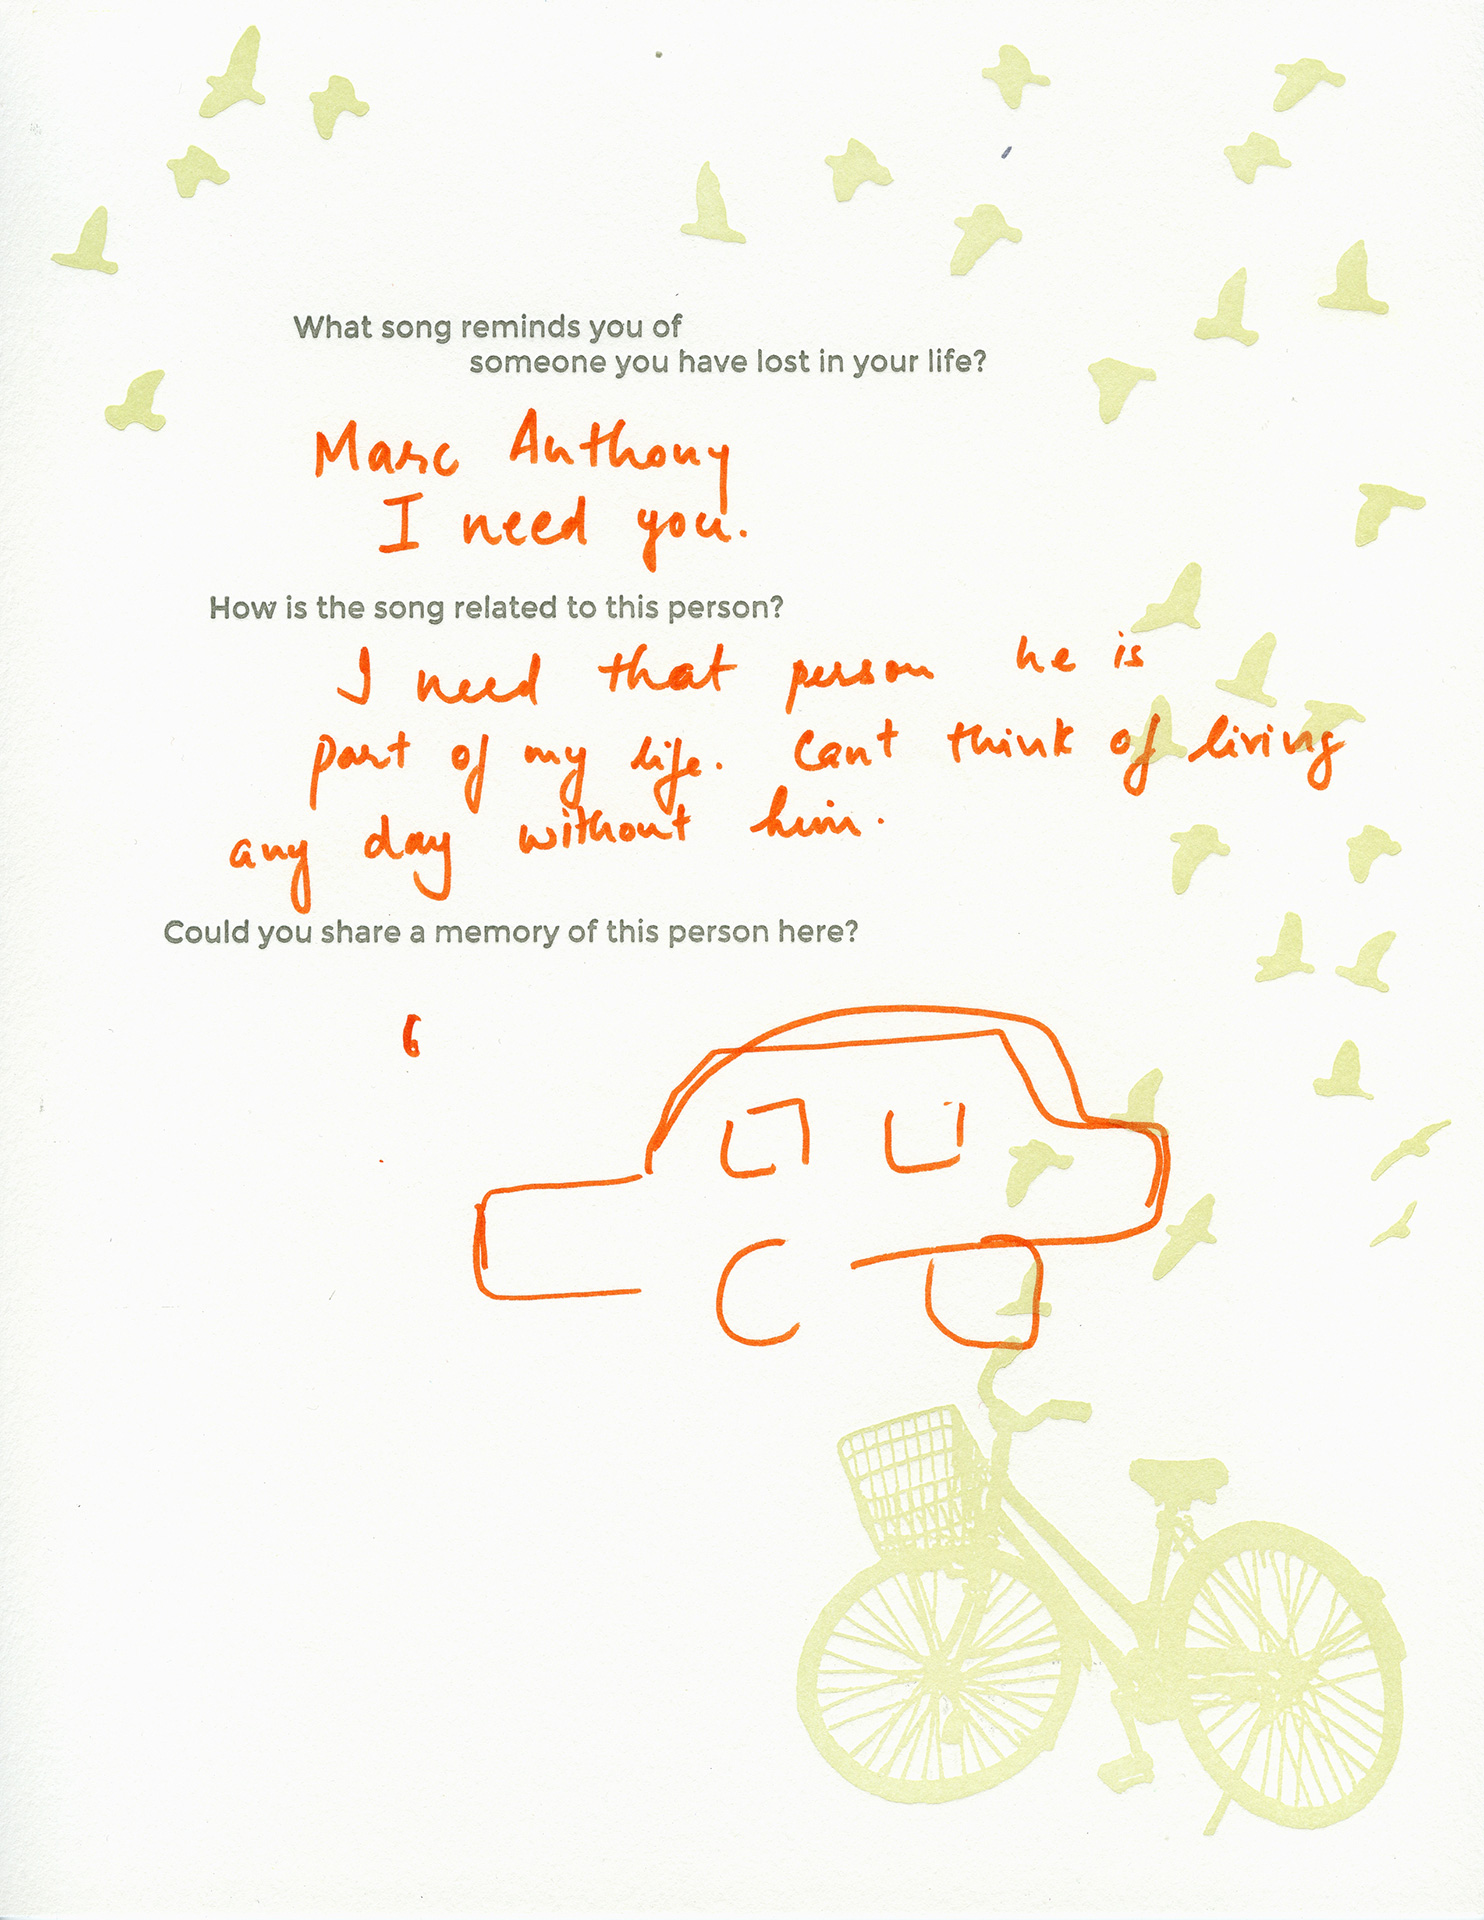 What song reminds you of
someone you have lost in your life?
Marc Anthony
I need you.
How is the song related to this person?
I need that person he is
part of my life. Cant think of living
any day without him.
Could you share a memory of this person here?